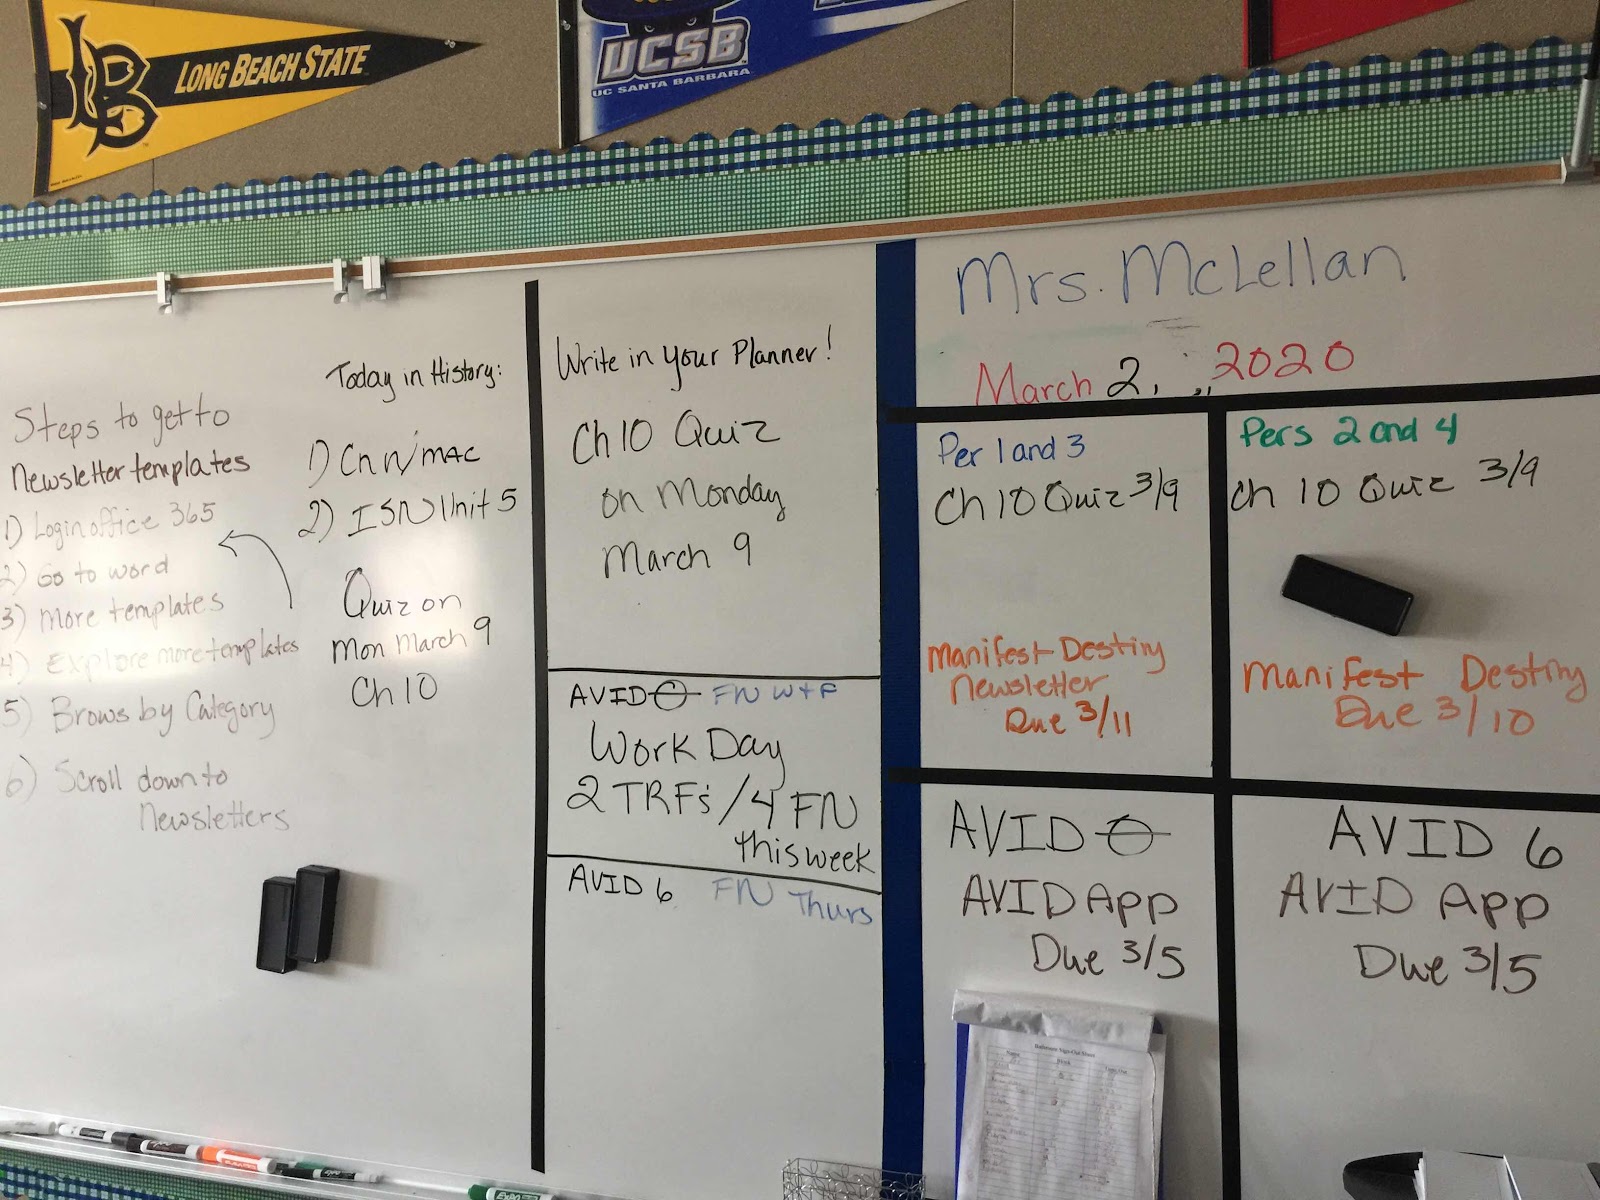 LB LONG BEACH STATE
UCSB
UC SANTA BARBARA
Steps to get to
Newsletter templates
1) Login office 365
2) Go to word
3) More templates
4) Explore more templates
5) Brows by Category
6) Scroll down to
Newsletters
Today in History:
1) Cnn/mac
2) ISN Unit 5
Quiz on
Mon March 9
Ch 10
Write in your Planner!
Ch 10 Quiz
on Monday
March 9
AVID 0 FN W+F
Work Day
2 TRFs / 4 FN
this week
AVID 6 FN Thurs
Mrs. McLellan
March 2, 2020
Per 1 and 3
Ch 10 Quiz 3/9
Manifest Destiny
Newsletter
Due 3/11
Pers 2 and 4
Ch 10 Quiz 3/9
Manifest Destiny
Due 3/10
AVID 0
AVID App
Due 3/5
AVID 6
AVID App
Due 3/5
EXPO